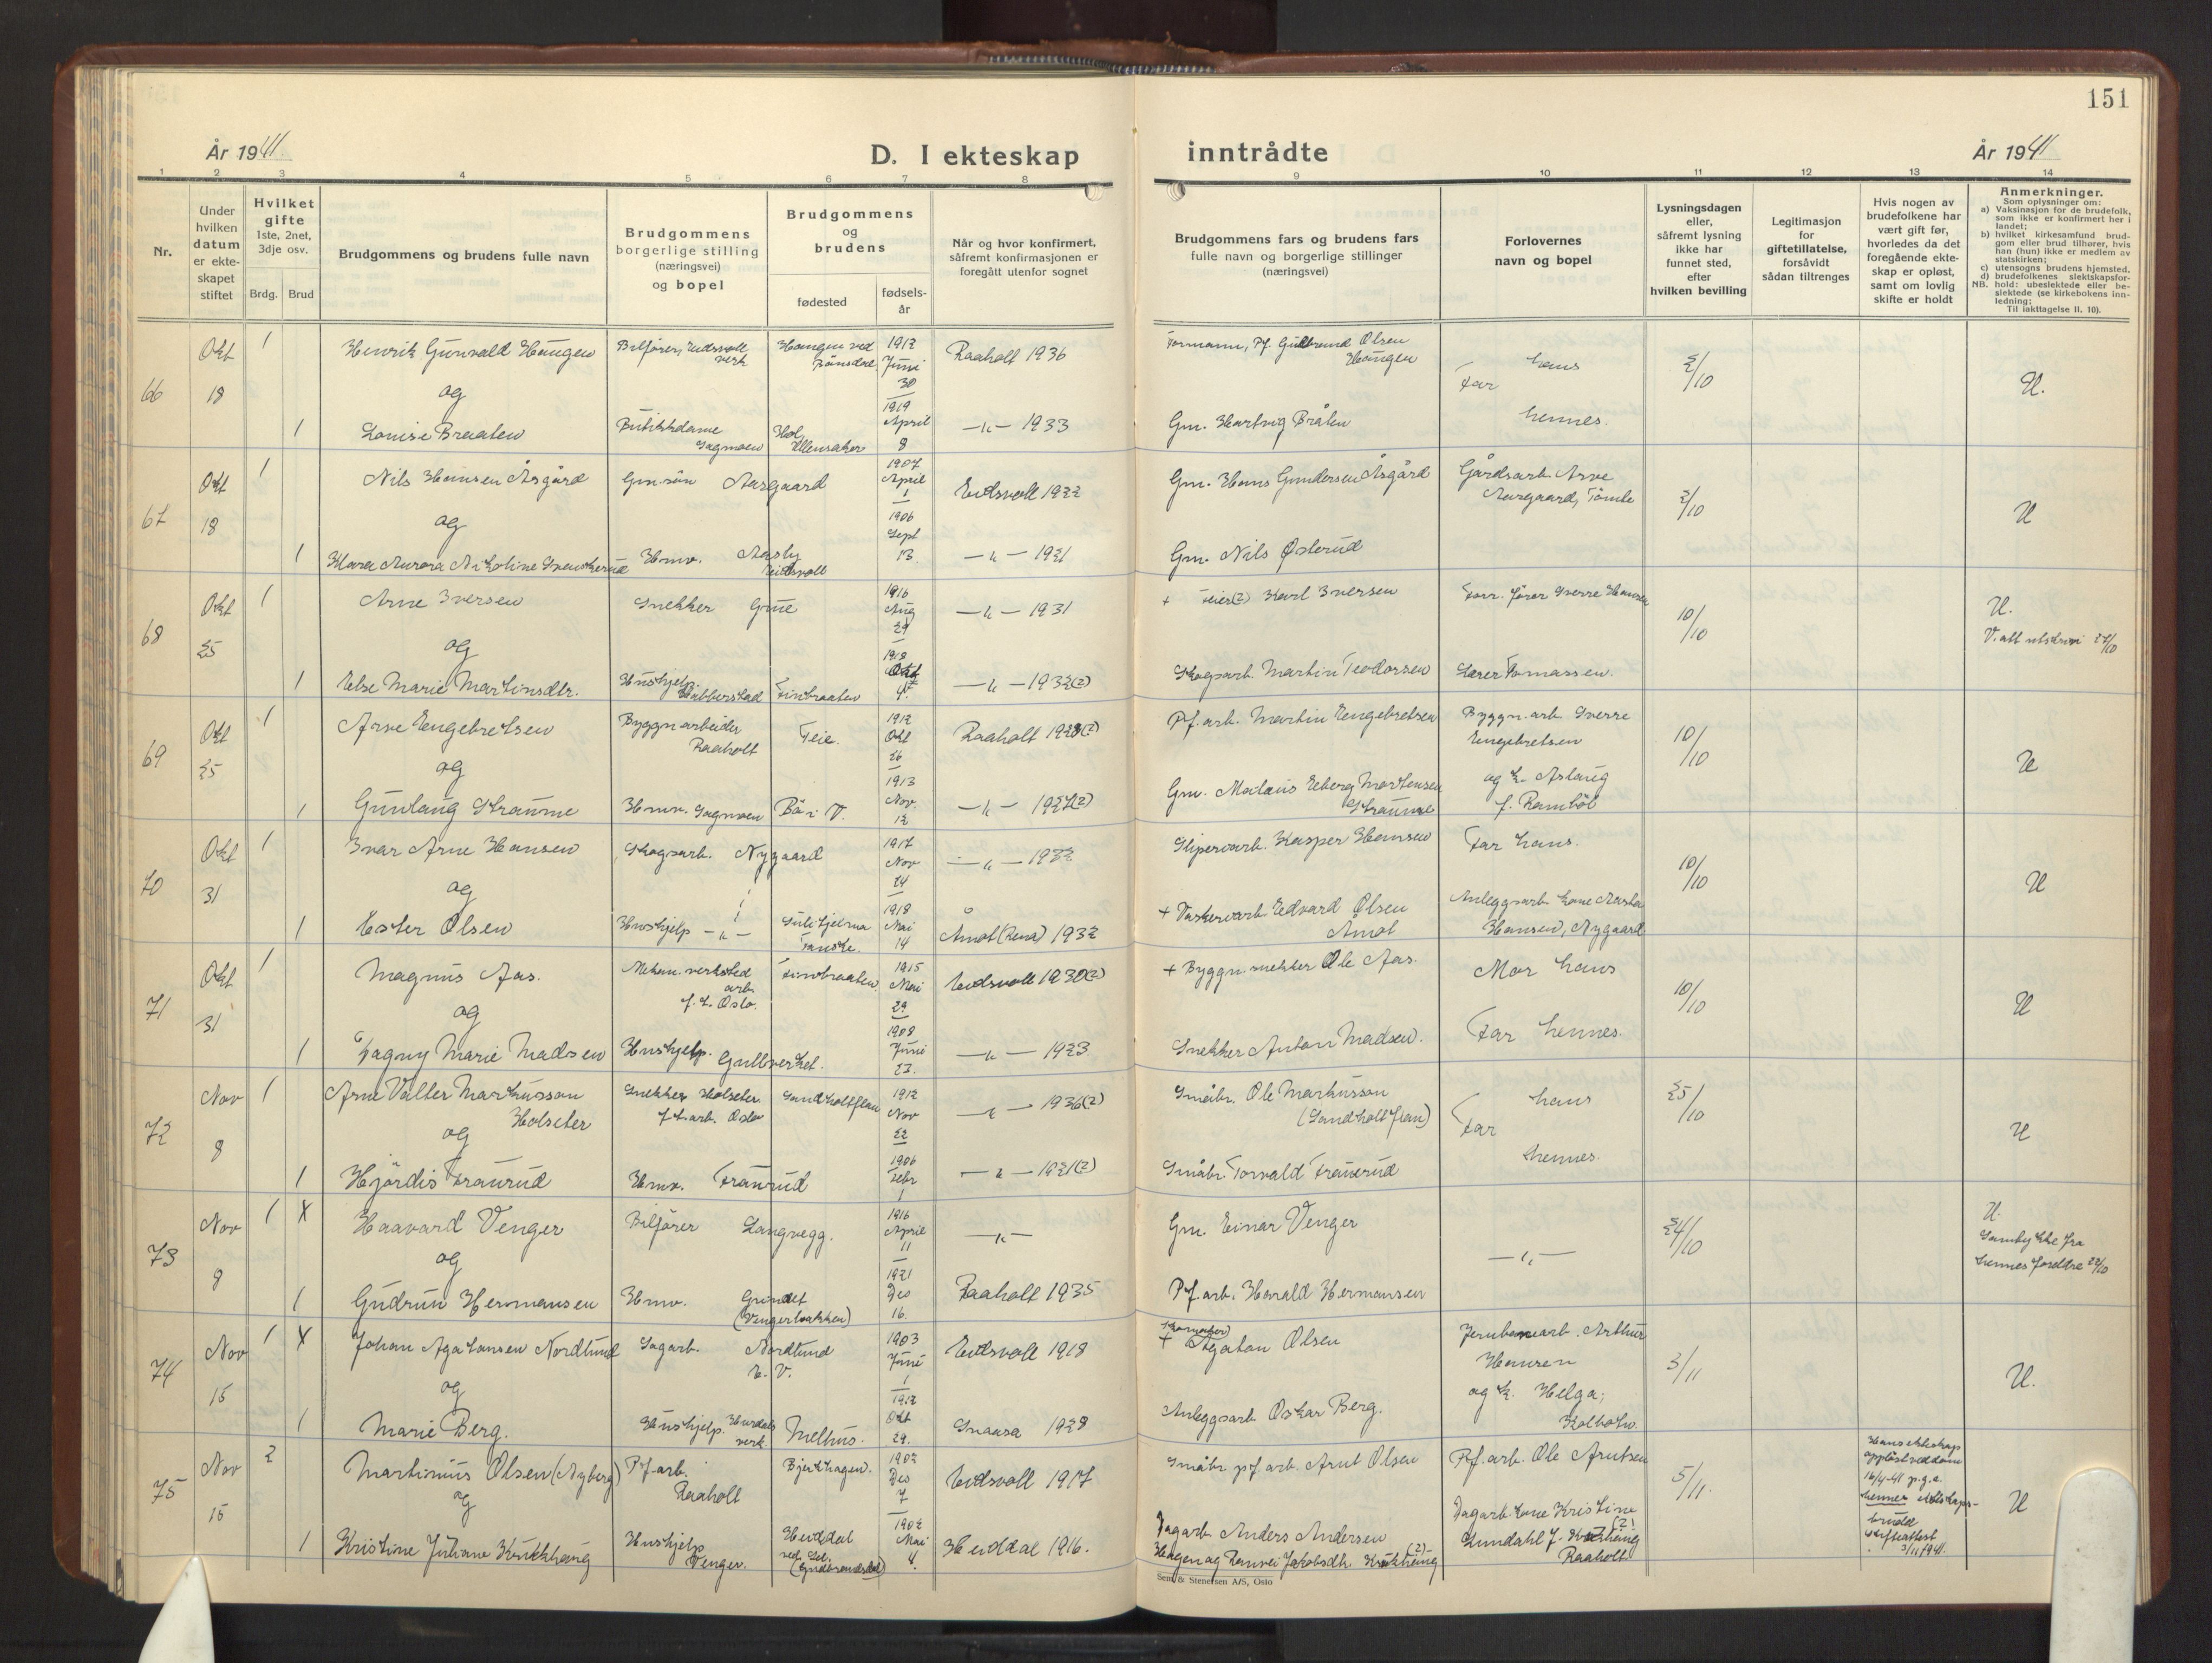 151
År 1941
D. I ekteskap
inntrådte
År 1941
1 2 3 4 5 6 7 8 9 10 11 12 13 14
Nr.
Under hvilken datum er ekte-skapet stiftet
Hvilket gifte 1ste, 2net, 3dje osv.
Brdg. Brud
Brudgommens og brudens fulle navn
Brudgommens borgerlige stilling (næringsvei) og bopel
Brudgommens og brudens
fødested
fødsels-år
Når og hvor konfirmert, såfremt konfirmasjonen er foregått utenfor sognet
Brudgommens fars og brudens fars fulle navn og borgerlige stillinger (næringsvei)
Forlovernes navn og bopel
Lysningsdagen eller, såfremt lysning ikke har funnet sted, efter hvilken bevilling
Legitimasjon for giftetillatelse, forsåvidt sådan tiltrenges
Hvis nogen av brudefolkene har vært gift før, hvorledes da det foregående ekte-skap er opløst, samt om lovlig skifte er holdt
Anmerkninger.
Som oplysninger om:
a) Vaksinasjon for de brudefolk, som ikke er konfirmert her i landet;
b) hvilket kirkesamfund brud-gom eller brud tilhører, hvis han (hun) ikke er medlem av statskirken;
c) utensogns brudens hjemsted.
d) brudefolkenes slektskapsfor-hold: ubeslektede eller be-slektede (se kirkebokens inn-ledning;
NB.
Til iakttagelse II. 10).
66 Okt 18 1 Henrik Gunvald Haugen Bilfører, Eidsvoll verk Haugen ved Bønsdal 1912 Juni 30 Raaholt 1936 Formann, Pf. Gulbrand Olsen Haugen Far hans 2/10 U.
og
1 Louise Braaten Butikkdame Sagmoen Hol, Ullensaker 1919 April 8 -"- 1933 Gm. Hartvig Bråten hennes.
67 Okt 18 1 Nils Hansen Åsgård Gm. søn Aasgaard 1907 April 1 Eidsvoll 1922 Gm. Hans Gundersen Åsgård Gårdsarb. Arve Aasgaard, Tømte 2/10 U
og
1 Mara Aurora Nikoline Svenskerud Hmv. Aasly Eidsvoll 1906 Sept 13. -"- 1921 Gm. Nils Østerud
68 Okt 25 1 Arne Iversen Snekker Grue 1916 Aug 29 -"- 1931 + Feier(?) Karl Iversen Forr. fører Sverre Hansen 10/10 U.
og
V. att utskrevi 27/10
1 Else Marie Martinsdtr. Hushjelp. Habberstad Finbraaten 1918 Okt 4. -"- 1932(?) Skogsarb. Martin Teodorsen Lærer Tomassen.
69 Okt 25 1 Arne Engebretsen Byggn arbeider Raaholt Feie. 1912 Okt 26 Raaholt 1928(?) Pf. arb. Martin Engebretsen Byggn. arb. Sverre Engebretsen 10/10 U
og
1 Gunlaug Straume Hmv. Sagmoen Bø i V. 1913 Nov. 12 -"- 1927(?) Gm. Matæus Eeberg Mortensen Straume og k. Aslaug f. Rambøl
70 Okt 31 1 Ivar Arne Hansen Skogsarb. Nygaard 1917 Nov 24 -"- 1932 Sliperarb. Kasper Hansen Far hans. 10/10 U
og
1 Ester Olsen Hushjelp -"- Sulitjelma Fauske. 1918 Mai 14 Åmot (Rena) 1932 + Vaskeriarb. Edvard Olsen Åmot Anleggsarb. kone Aasta Hansen, Nygaard
71 Okt 31 1 Magnus Aas. Mekan. verksted arb. f. t. Oslo. Finbraaten. 1915 Mai 29 Eidsvoll 1930(?) + Byggn. snekker Ole Aas. Mor hans 10/10 U
og
1 Dagny Marie Madsen Hushjelp. Gullverket. 1908 Juni 27. -"- 1923 Snekker Anton Madsen. Far hennes.
72 Nov 8 1 Arne Valter Markusson Holseter Snekker Holseter f. t. arb. Oslo Sandholtflau 1912 Nov 22 -"- 1936(?) Småbr. Ole Markusson (Sandholtflau) Far hans 25/10 U
og
1 Hjørdis Traurud Hmv. Traurud 1906 Febr 1 -"- 1921(?) Småbr. Torvald Trauerud hennes.
73 Nov 8 1 X Haavard Venger Bilfører Langvegg. 1916 April 11 -"- Gm. Einar Venger -"- 24/10 U.
og
Samtykke fra hennes foreldre 22/10
1 Gudrun Hermansen Hmv. Grindet (Vengerbakken) 1921 Des 16. Raaholt 1935 Pf. arb. Harald Hermansen
74 Nov 15 1 X Johan Agatonsen Nordlund Sagarb. Nordlund E. V. 1903 Juni 1 Eidsvoll 1918 + Skomaker) Agaton Olsen Jernbanearb. Arthur Hansen 3/11 U.
og
1 Marie Berg. Hushjelp. Hurdals verk. Melhus. 1912 Okt 29. Snaasa 1928 Anleggsarb. Oskar Berg. og k. Helga; Kolbotn.
75 Nov 15 2 Martinius Olsen (Nyberg) Pf. arb. Raaholt Bjerkhagen. 1902 Des 7 Eidsvoll 1917 Småbr. pf arb. Arnt Olsen Pf. arb. Ole Arntsen 5/11. Hans ekteskap oppløst ved dom 16/4-41 p.g.a. hennes ekteskaps-brudd Skifteattest 3/11 1941. U
og
1 Kristine Juliane Krukhaug Hushjelp Venger. Heidal ved Sel. (Gudbrandsdal) 1902 Mai 4. Heidal 1916. Dagarb. Anders Andersen Hagen og Ranvei Jakobsdtr. Krukhaug(?) Dagarb. kone Kristine Lundahl f. Krukhaug(?) Raaholt.
Sem & Stenersen A/S, Oslo